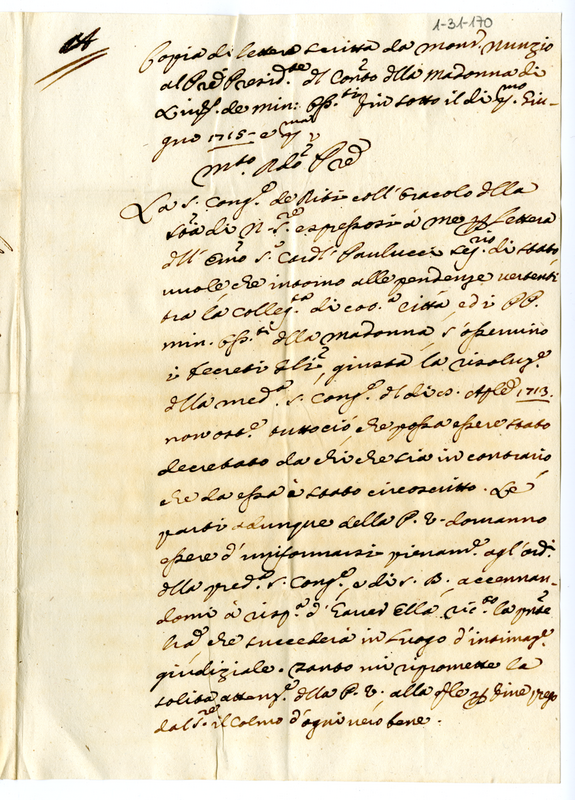 1-31-170
Copia di lettera scritta da mons.r Nunzio
al Pre Presid.te del Con.to della Madonna di
de min: oss.ti fin sotto il di p.mo Giu-
gno 1715
M.to R.do Pre
La S. Cong.e de Riti coll'oracolo della
S.tà di N. S.re espressosi à me per lettera
dell' Em.o S.r Card.l Paulucci Seg.rio di stato
vuole, che intorno alle pendenze vertenti
tra la Colleg.ta di città, ed i PP.
min. oss.ti della Madonna s'osservino
i decreti giusta la risoluz.e
della med.a S. Cong.e del di 1713.
non ost.e tuttociò, che possa essere stato
decretato da chi che sia in contrario
che da essa è stato circoscritto. Le
parti adunque della P. V. doranno
essere d'uniformarsi pienam.e agl'ord.i
della pred.a S. Cong.e, e di S. B. accennan-
domi à risp.a d'haver Ella ric.to la pnte
che succederà in luogo d'intimaz.e
giudiziale. Tanto mi riprometto la
solita attenz.e della P. V., alla per fine prego
dal S.re il colmo d'ogni vero bene.